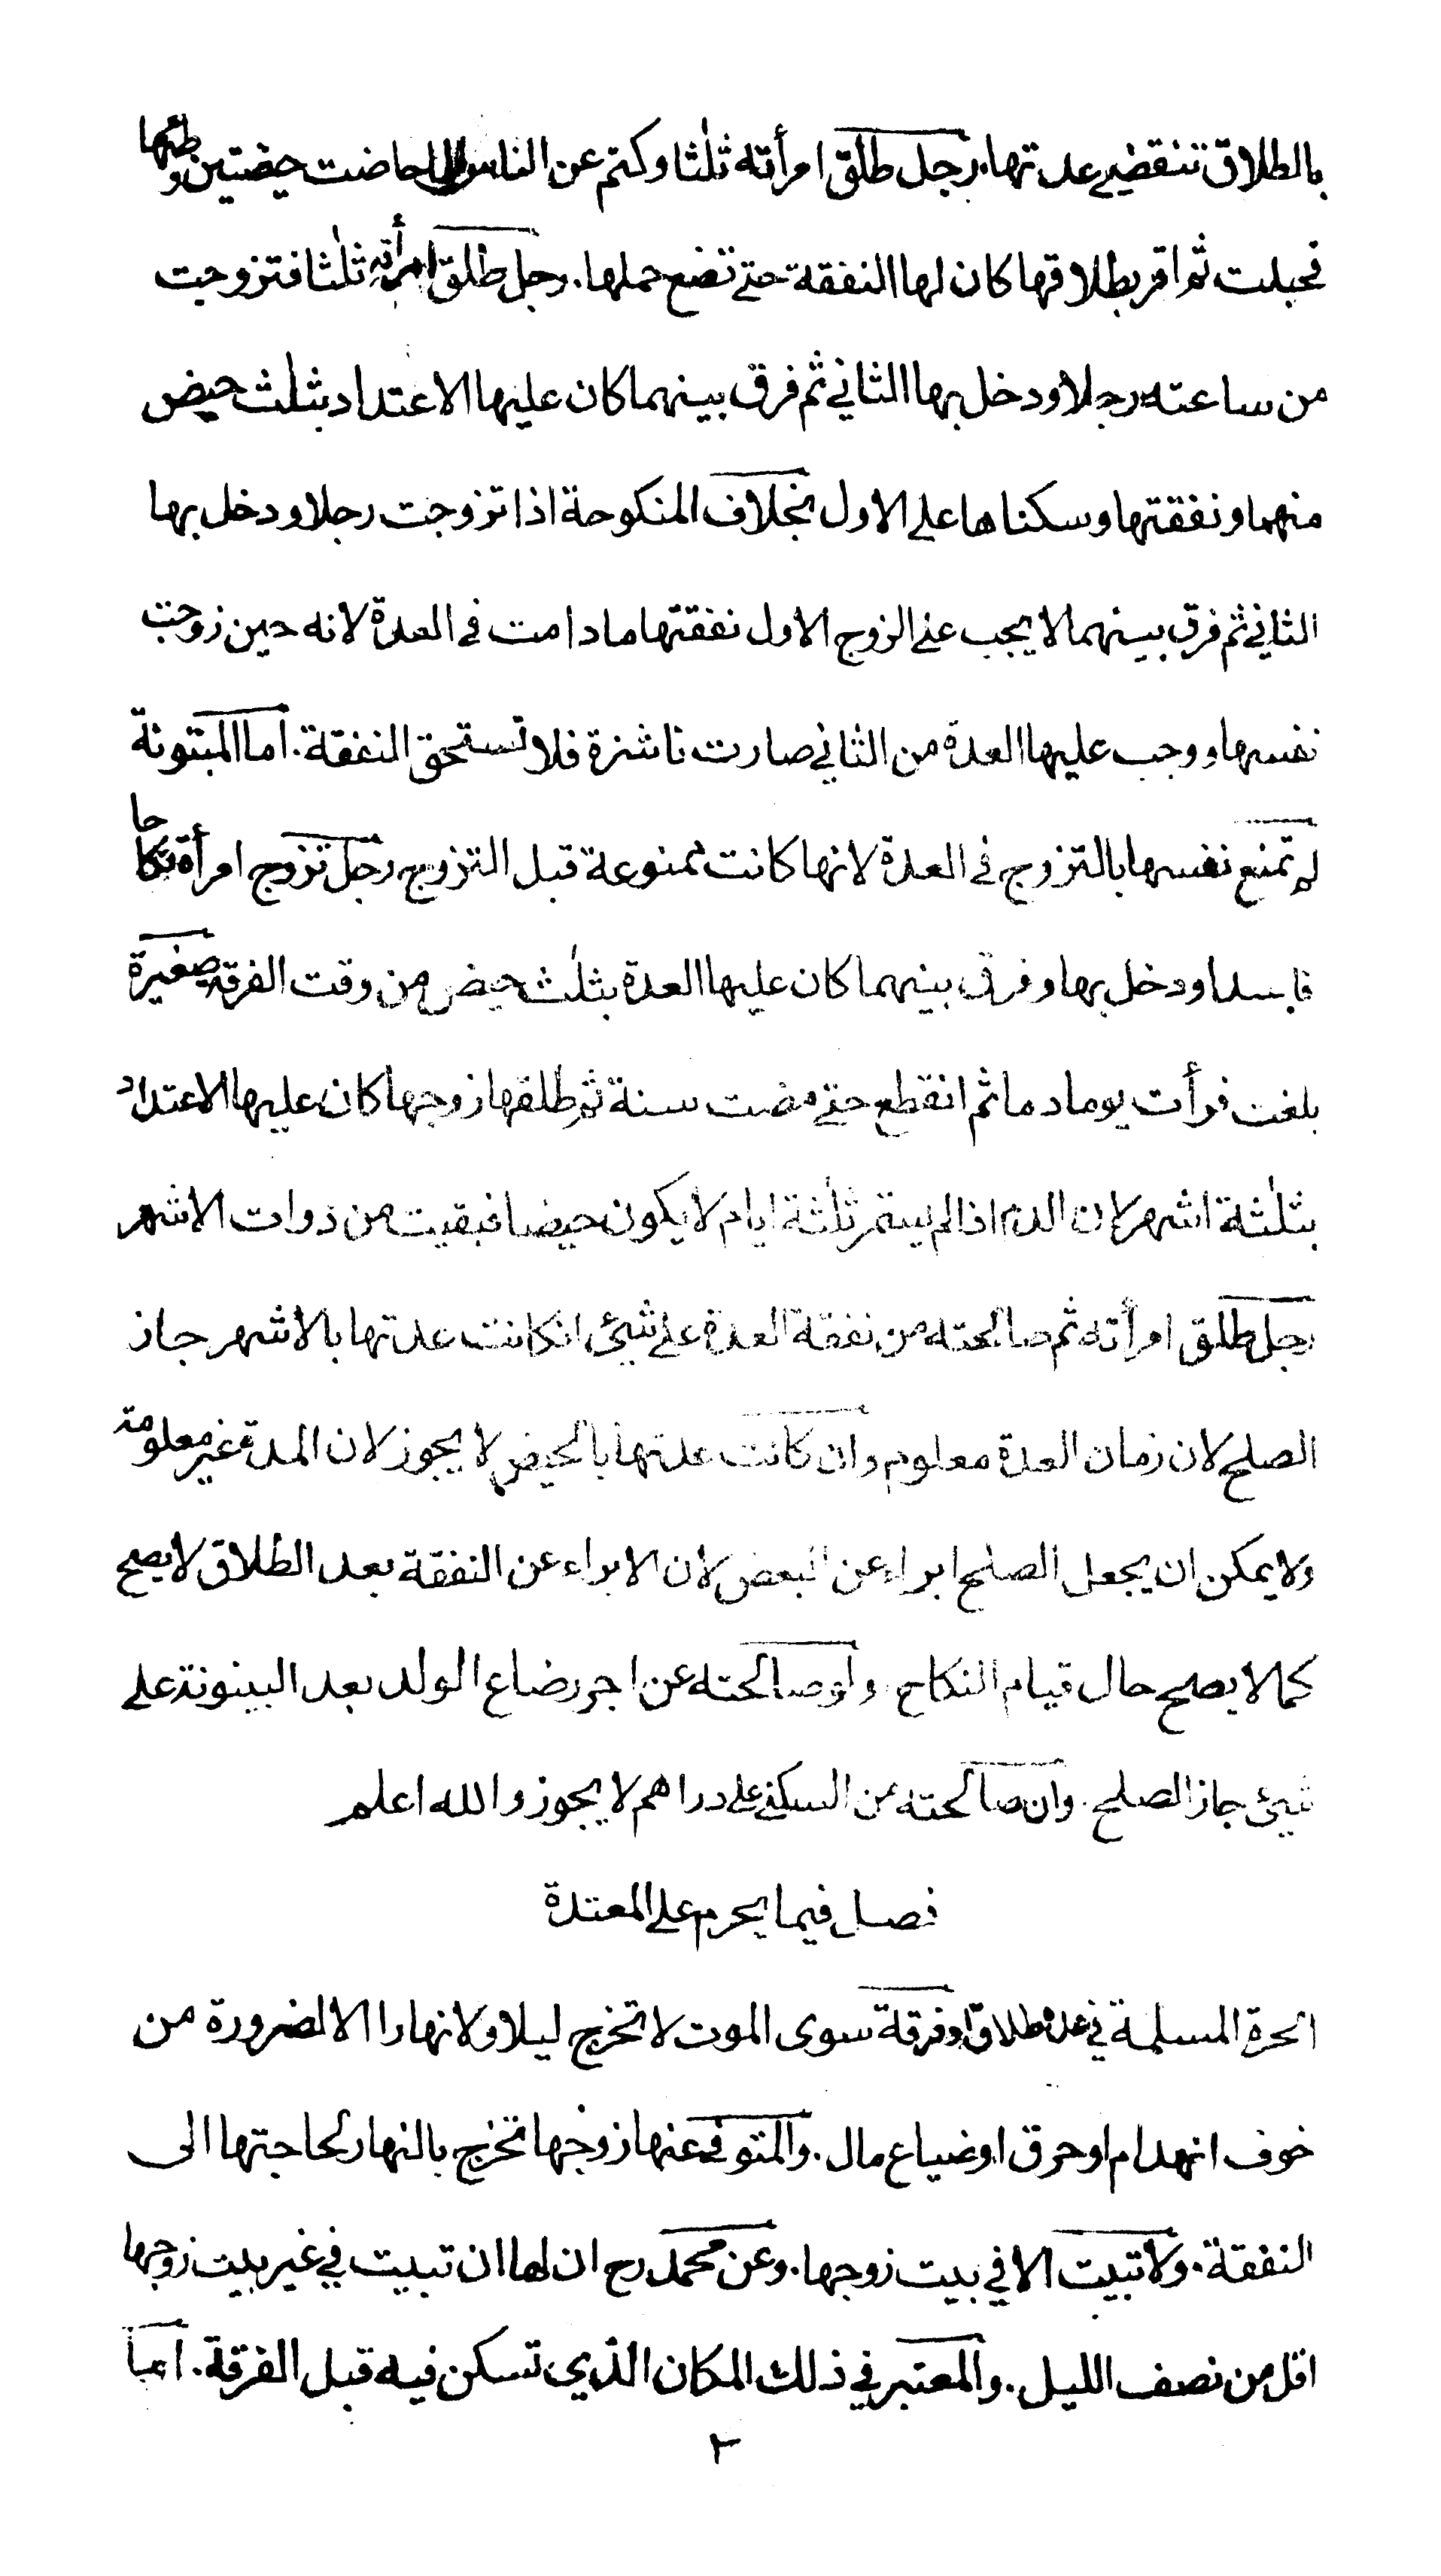 بالطلاق تنقضي عدتها. رجل طلق امرأته ثلثا وكتم عن الناس حاضت حيضتين وطئها
فحبلت ثم اقر بطلاقها كان لها النفقة حتى تضع حملها. رجل طلق امرأته ثلثا فتزوجت
من ساعته رجلا ودخل بها الثاني ثم فرق بينهما كان عليها الاعتداد بثلث حيض
منهما ونفقتها وسكناها على الاول بخلاف المنكوحة اذا تزوجت رجلا ودخل بها
الثاني ثم فرق بينهما لا يجب على الزوج الاول نفقتها ما دامت في العدة لانه حين زوجت
نفسها ووجب عليها العدة من الثاني صارت ناشزة فلا تستحق النفقة. اما المبتوتة
لم تمنع نفسها بالتزوج في العدة لانها كانت ممنوعة قبل التزوج رجل تزوج امرأة نكاحا
فاسدا ودخل بها وفرق بينهما كان عليها العدة بثلث حيض من وقت الفرقة صغيرة
بلغت فرأت يوما دما ثم انقطع حتى مضت سنة ثم طلقها زوجها كان عليها الاعتداد
بثلثة اشهر لان الدم اذا لم يستمر ثلثة ايام لا يكون حيضا فبقيت من ذوات الاشهر
رجل طلق امرأته ثم صالحته من نفقة العدة على شيئ انكانت عدتها بالاشهر جاز
الصلح لان زمان العدة معلوم وان كانت عدتها بالحيض لا يجوز لان المدة غير معلومة
ولا يمكن ان يجعل الصلح ابراء عن البعض لان الابراء عن النفقة بعد الطلاق لا يصح
كما لا يصح حال قيام النكاح. ولو صالحته عن اجر رضاع الولد بعد البينونة على
شيئ جاز الصلح. وان صالحته من السكنى على دراهم لا يجوز والله اعلم
فصل فيما يحرم على المعتدة
الحرة المسلمة في عدة طلاق او فرقة سوى الموت لا تخرج ليلا ولا نهارا الا لضرورة من
خوف انهدام او حرق او ضياع مال. والمتوفى عنها زوجها تخرج بالنهار لحاجتها الى
النفقة. ولا تبيت الا في بيت زوجها. وعن محمد رح ان لها ان تبيت في غير بيت زوجها
اقل من نصف الليل. والمعتبر في ذلك المكان الذي تسكن فيه قبل الفرقة. اما
٢